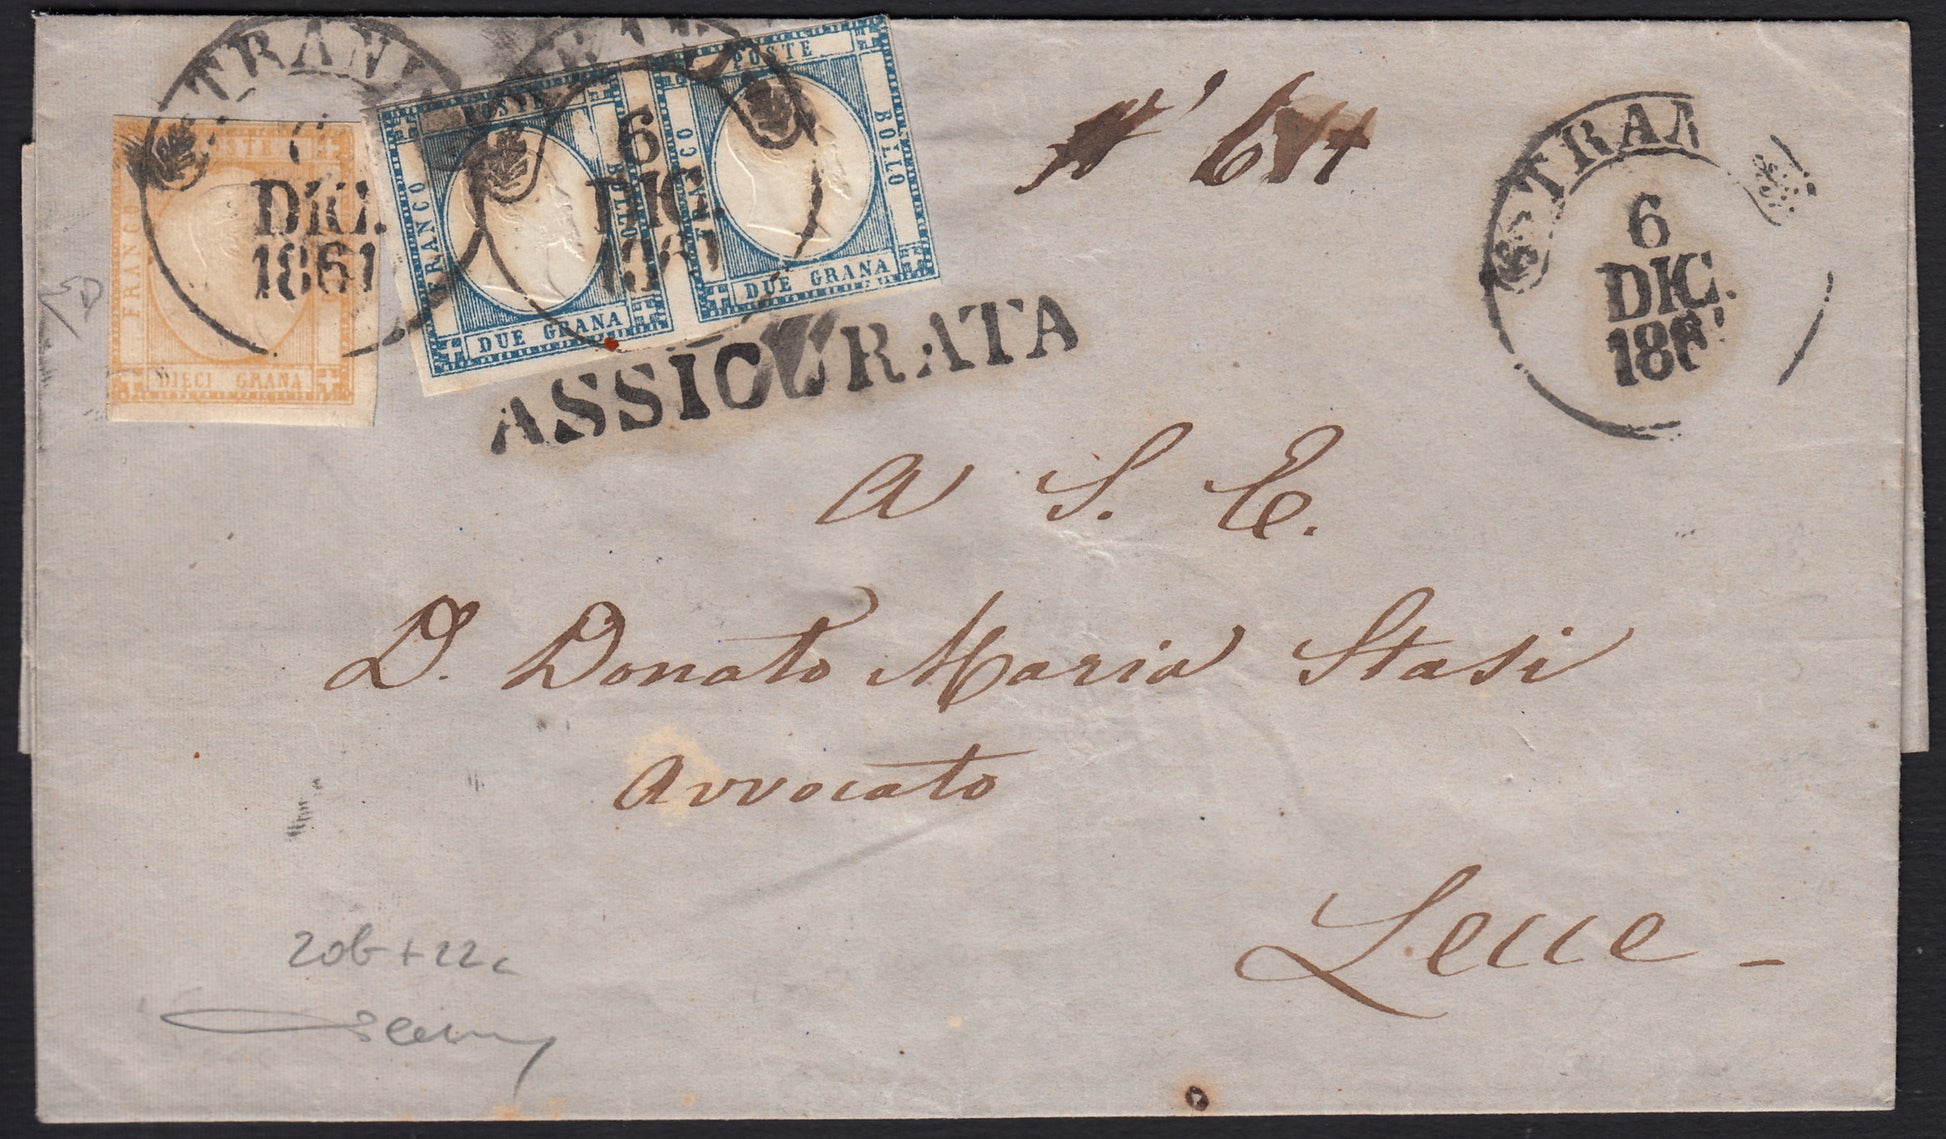 TRANI
DIC.
1861
POSTE
FRANCO
DIECI GRANA
TRANI
6
DIC.
1861
POSTE
FRANCO
BOLLO
DUE GRANA
POSTE
FRANCO
BOLLO
DUE GRANA
ASSICURATA
TRAN
6
DIC.
186
A S. E.
D. Donato Maria Stasi
Avvocato
Lecce -
20b + 22c